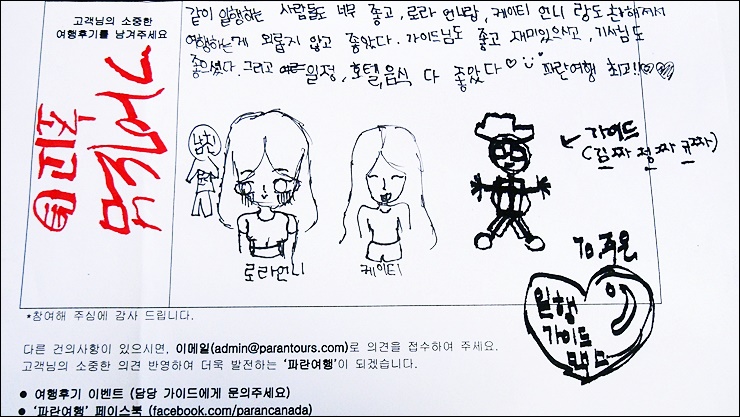 고객님의 소중한
여행후기를 남겨주세요
같이 일행하는 사람들도 너무 좋고, 로라 언니랑, 케이티 언니 랑도 친해져서
여행하는게 외롭지 않고 좋았다. 가이드님도 좋고 재미있으시고, 기사님도
좋으셨다. 그리고 일정, 호텔, 음식 다 좋았다♡ 파란여행 최고!!♡♡♡
가이드님
최고
로라언니
케이티
가이드
(김짜 정짜 규짜)
일행
가이드
*참여해 주심에 감사 드립니다.
다른 건의사항이 있으시면, 이메일(admin@parantours.com)로 의견을 접수하여 주세요.
고객님의 소중한 의견 반영하여 더욱 발전하는 '파란여행'이 되겠습니다.
● 여행후기 이벤트 (담당 가이드에게 문의주세요)
● '파란여행' 페이스북 (facebook.com/parancanada)